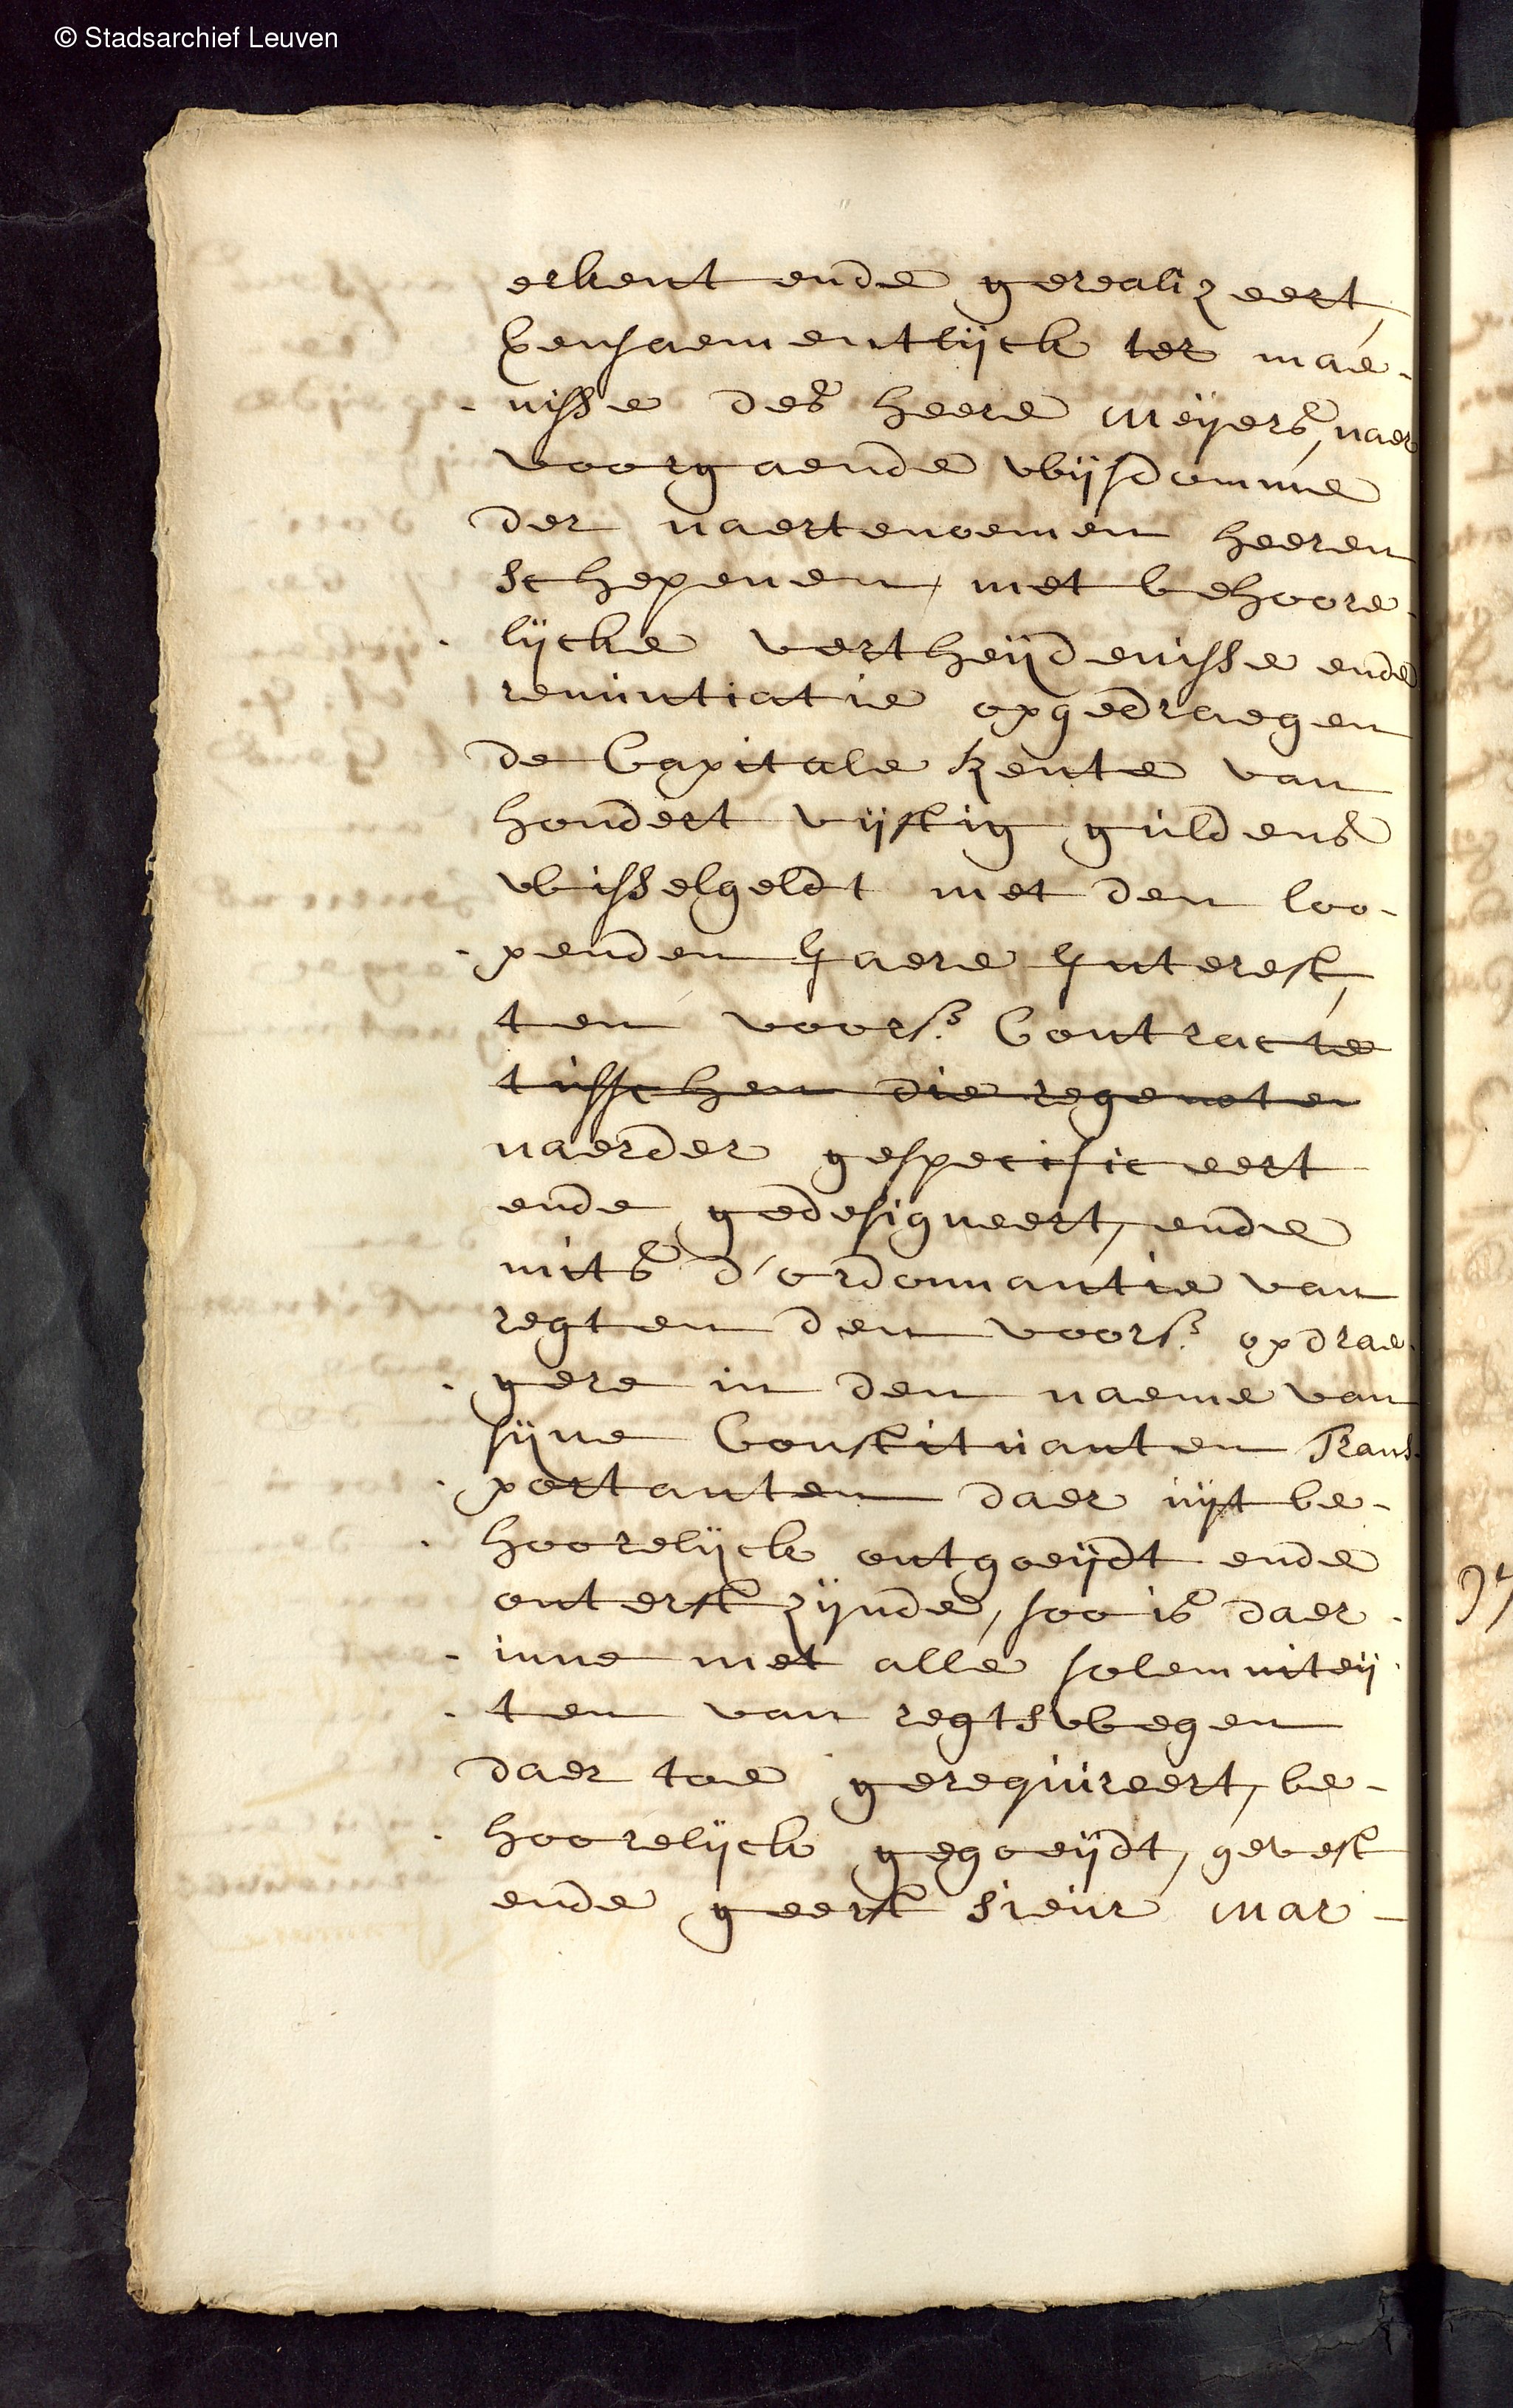 © Stadsarchief Leuven
erkent ende gerealizeert,
eensaementlijck ter mae-
-nisse des heere Meijers, naer
voorgaende wijsdomme
der naertenoemen heeren
schepenen, met behoore-
-lijcke vertheijdenisse ende
renuntiatie opgedraegen
de Capitale Rente van
hondert vijftig guldens
wisselgeldt met den loo-
-penden Jaere Interest,
ten voors. Contracte
tusschen die regenoten
naerder gespecificeert
ende gedesigneert, ende
mits d'ordonnantie van
regten den voors. opdrae-
-gere in den naeme van
sijne Constituanten Trans-
-portanten daer uijt be-
-hoorelijck ontgoeijdt ende
onterft zijnde, soo is daer-
-inne met alle solemniteij-
-ten van regtswegen
daer toe gerequireert, be-
-hoorelijck gegoeijdt, gevest
ende geerft sieur Mar-